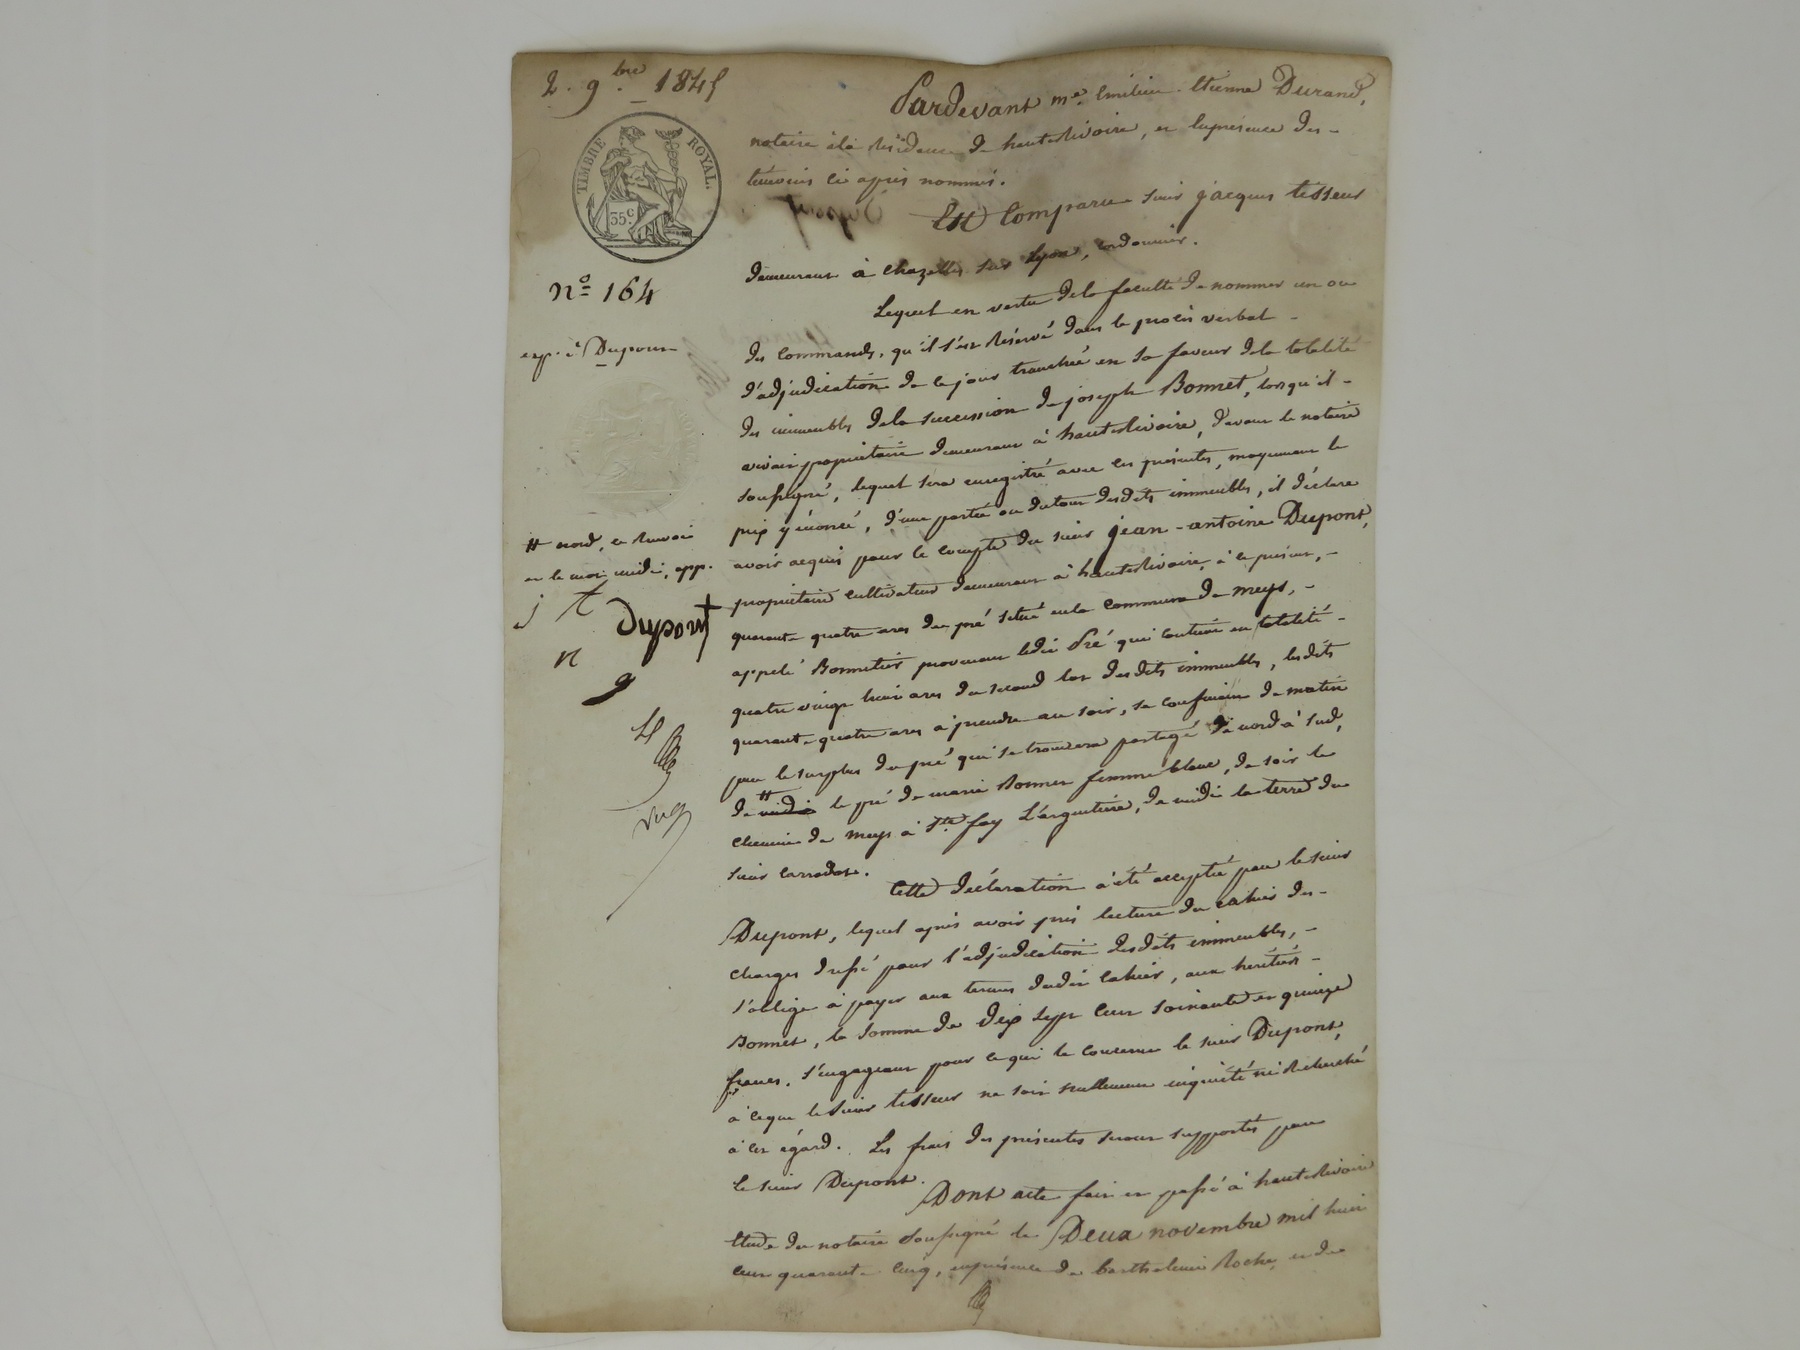 2. 9.bre 1845
TIMBRE ROYAL.
35c
No 164
exp. à Dupont
# nord, ce renvoi
et le mot midi, app.
j t
Dupont
n
g
Pardevant me. Emilien Etienne Durand,
notaire à la résidence de hauterivoire, en la présence des -
témoins ci après nommés.
Est Comparu sieur jacques tisseur
demeurant à chazelles sur Lyon, cordonnier.
Lequel en vertu de la faculté de nommer un ou
des commands, qu'il s'est réservé dans le procès verbal -
d'adjudication de ce jour tranchée en sa faveur de la totalité
des immeubles de la succession de joseph Bonnet, lorsqu'il -
vivait propriétaire demeurant à hauterivoire, devant le notaire
soussigné, lequel sera enregistré avec ces présentes, moyennant le
prix y énoncé, d'une partie ou du tout desdits immeubles, il déclare
avoir acquis pour le compte du sieur jean-antoine Dupont,
propriétaire cultivateur demeurant à hauterivoire, à ce présent, -
quarante quatre ares de pré situé en la commune de meys, -
appelé Bonnetier provenant ledit Pré qui contient en totalité -
quatre vingt huit ares du second lot desdits immeubles, lesdits
quarante quatre ares à prendre au soir, se confinant de matin
par le surplus du pré qui se trouvera partagé de nord à sud,
de # midi le pré de marie Bonnet femme blanc, de soir le
chemin de meys à Ste foy L'argentière, de midi la terre du
sieur
Cette déclaration a été acceptée par le sieur
Dupont, lequel après avoir pris lecture du cahier des -
charges dressé pour l'adjudication desdits immeubles, -
s'oblige à payer aux termes dudit cahier, aux héritiers -
Bonnet, la somme de dix sept cent soixante et quinze
francs. s'engageant pour ce qui le concerne le sieur Dupont,
à ce que le sieur tisseur ne soit nullement inquiété ni recherché
à cet égard. Les frais des présentes seront supportés par
le sieur Dupont.
Dont acte fait et passé à hauterivoire
étude du notaire soussigné le Deux novembre mil huit
cent quarante cinq, en présence de barthelemi Roche, et de